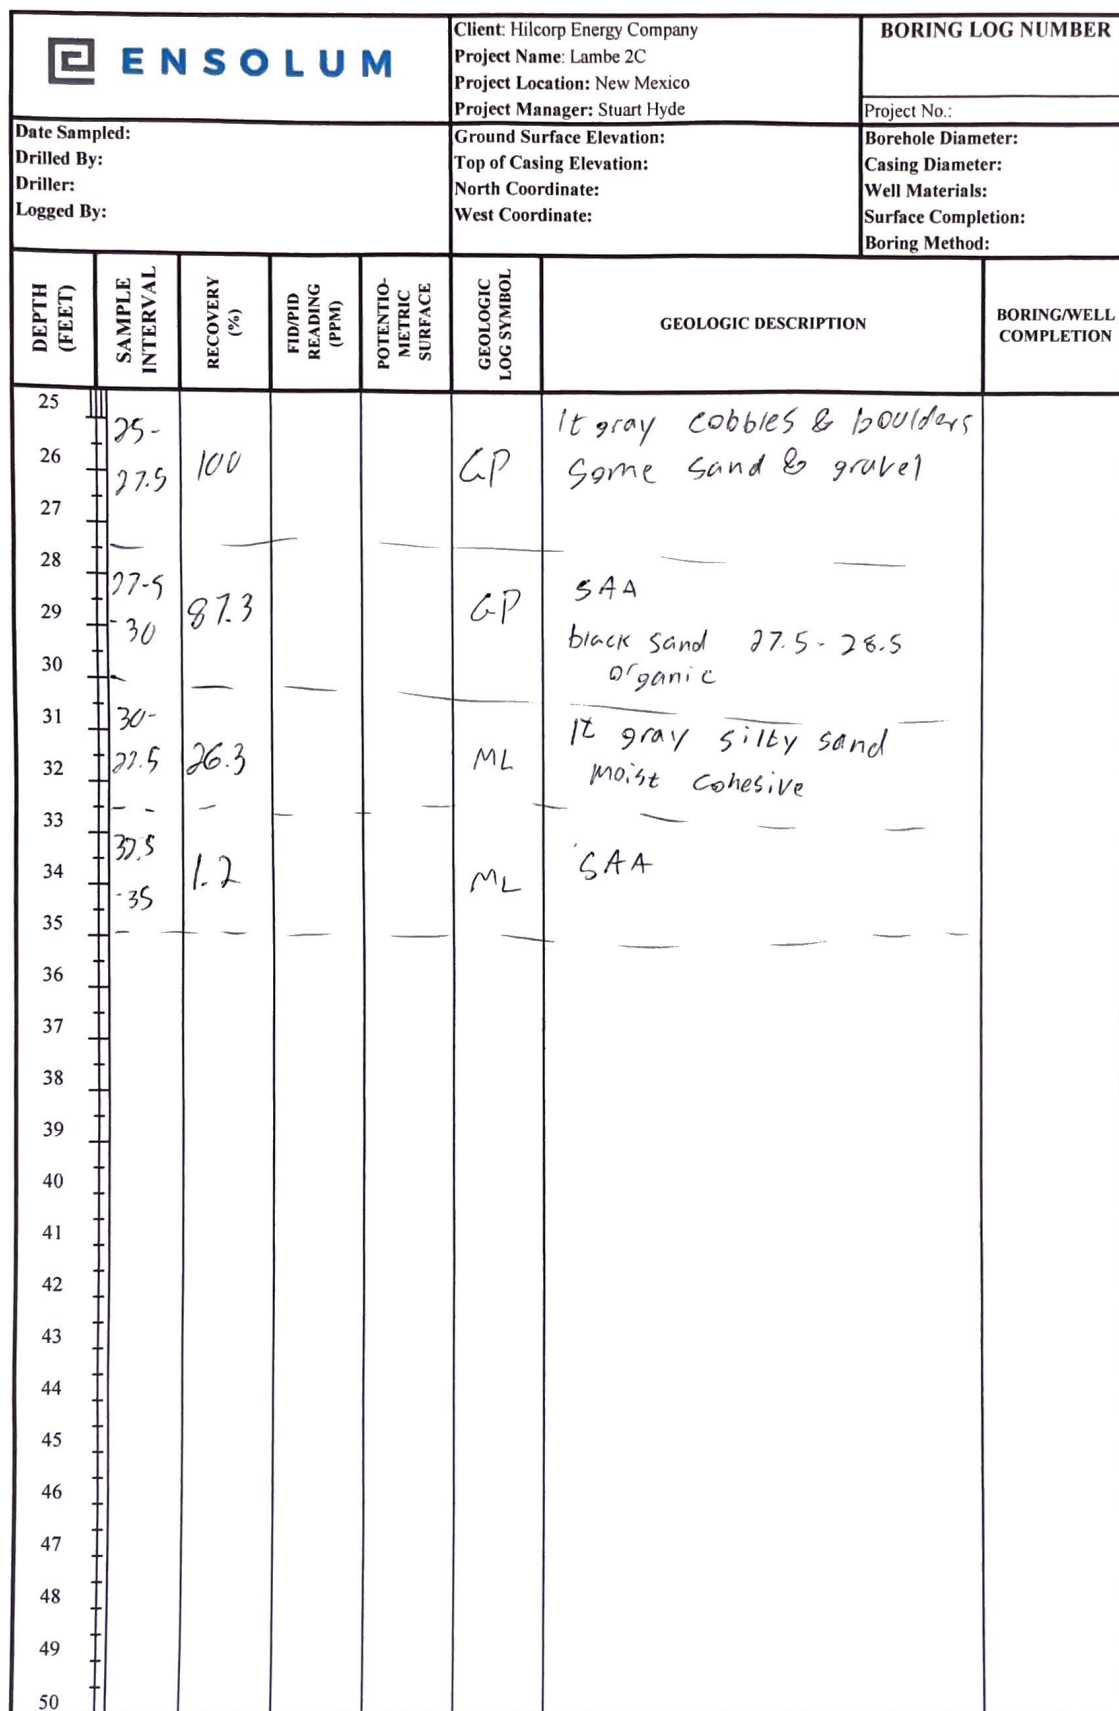 ENSOLUM
Client: Hilcorp Energy Company
Project Name: Lambe 2C
Project Location: New Mexico
Project Manager: Stuart Hyde
BORING LOG NUMBER
Project No.:
Date Sampled:
Drilled By:
Driller:
Logged By:
Ground Surface Elevation:
Top of Casing Elevation:
North Coordinate:
West Coordinate:
Borehole Diameter:
Casing Diameter:
Well Materials:
Surface Completion:
Boring Method:
DEPTH
(FEET)
SAMPLE
INTERVAL
RECOVERY
(%)
FID/PID
READING
(PPM)
POTENTIO-
METRIC
SURFACE
GEOLOGIC
LOG SYMBOL
GEOLOGIC DESCRIPTION
BORING/WELL
COMPLETION
25
25-
lt gray cobbles & boulders
26
27.5
100
GP
some sand & gravel
27
28
27.5
SAA
29
-30
87.3
GP
black sand 27.5-28.5
30
organic
31
30-
lt gray silty sand
32
26.3
ML
moist cohesive
33
34
1.2
ML
SAA
-35
35
36
37
38
39
40
41
42
43
44
45
46
47
48
49
50